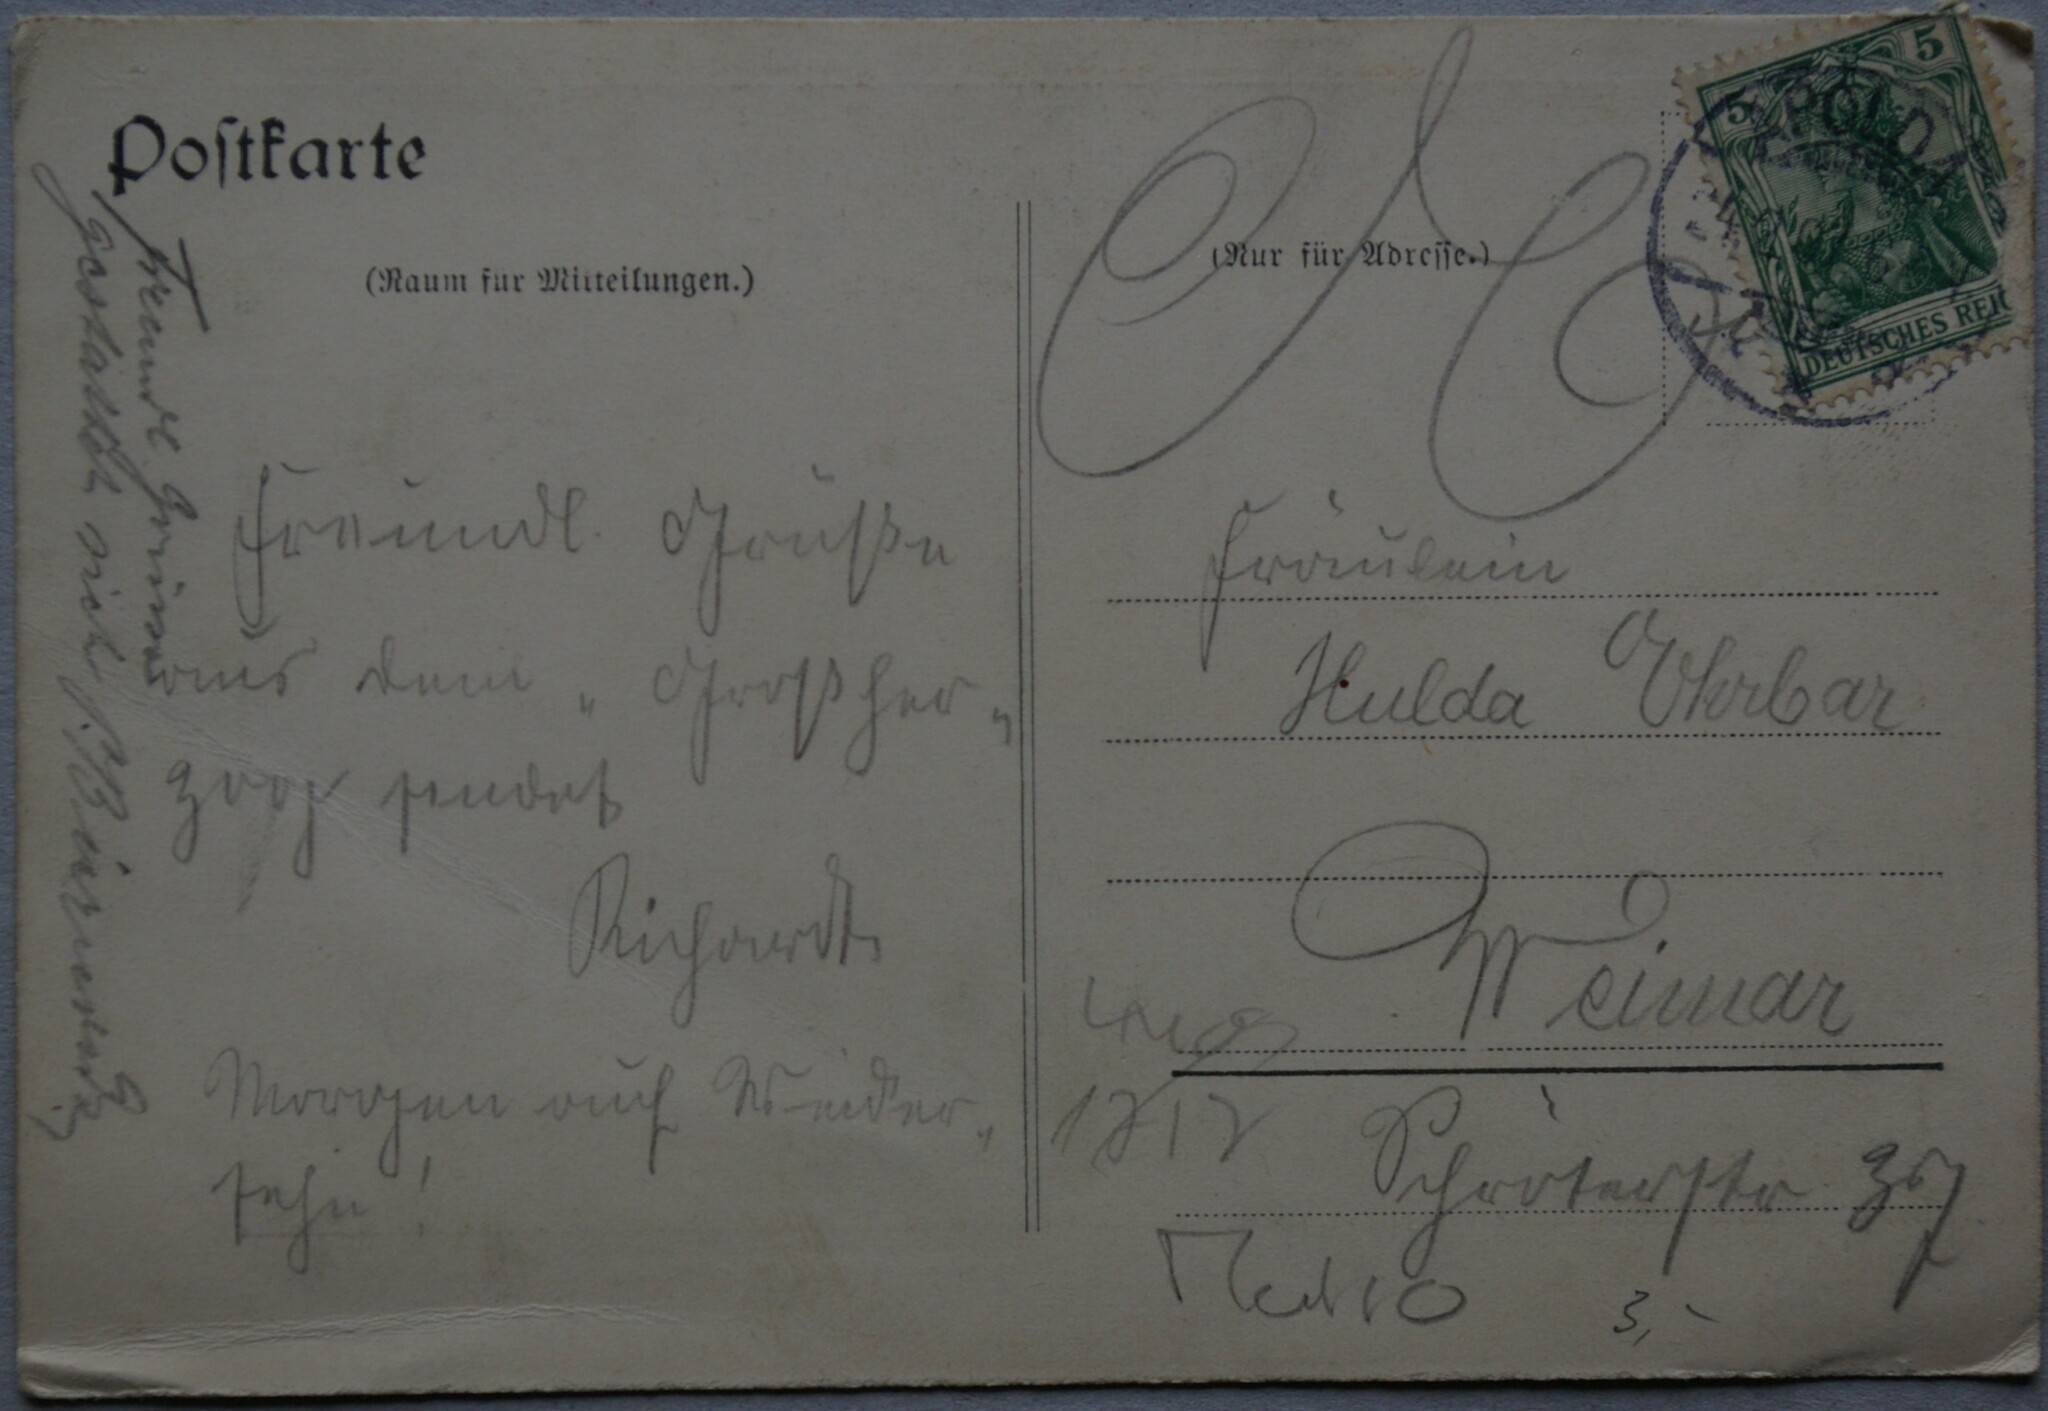 Postkarte
(Raum für Mitteilungen.)
Freundl. Grüße
aus dem „Großher-
zog" sendet
Richard
Morgen auf Wieder-
sehn!
(Nur für Adresse.)
5 5
APOLDA
DEUTSCHES REICH
Fräulein
Hulda Ohrbar
Weimar
Schröterstr 37
3,-